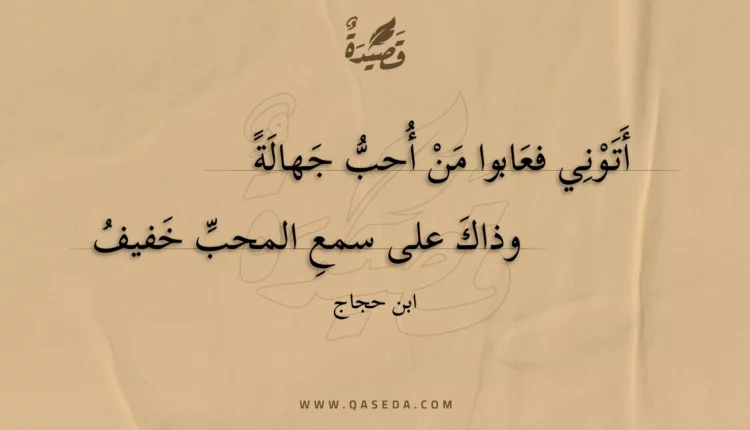 قَصِيدَةٌ
أَتَوْنِي فعَابوا مَنْ أُحبُّ جَهالَةً
وذاكَ على سمعِ المحبِّ خَفيفُ
ابن حجاج
WWW.QASEDA.COM